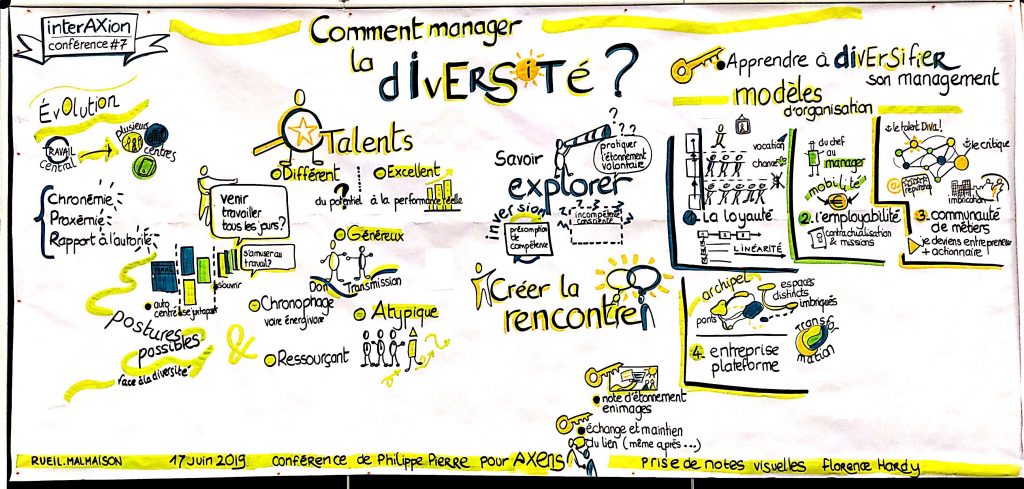 interAXion
conférence #7
Comment manager
la
diVERSiTé ?
Évolution
TRAVAIL
central
plusieurs
centres
Chronémie
Proxémie
Rapport à l'autorité
venir
travailler
tous les jours?
s'amuser au
travail?
s'ouvrir
auto
centre
juxtaposé
postures
possibles
face à la diversité
&
Talents
Différent
du potentiel
?
Excellent
à la performance réelle
Généreux
Don
Transmission
Chronophage
voire énergivore
Ressourçant
Atypique
Savoir
explorer
? ? ?
pratiquer
l'étonnement
volontaire
inversion
présomption
de
compétence
incompétence
consciente
Créer la
rencontre
note d'étonnement
en images
échange et maintien
du lien (même après...)
Apprendre à diVERSiFiER
son management
modèles
d'organisation
vocation
chance
1. La loyauté
LINÉARITÉ
du chef
au
manager
mobilité
2. l'employabilité
contractualisation
& missions
le talent Diva!
je critique
@
réputation
implication
3. communauté
de métiers
je deviens entrepreneur
+ actionnaire!
archipel
ponts
espaces
distincts
imbriqués
4. entreprise
plateforme
Transfo
mation
RUEIL.MALMAISON
17 Juin 2019
conférence de Philippe Pierre pour AXens
prise de notes visuelles Florence Hardy